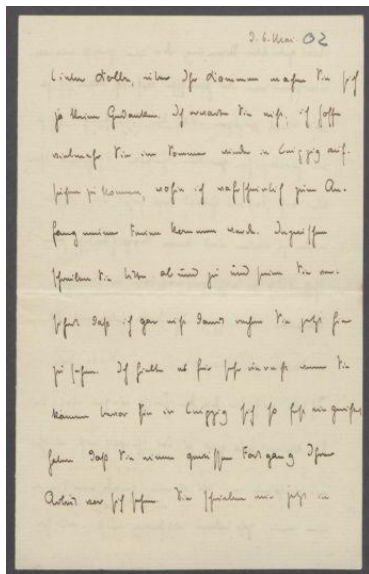 D. 6. Mai 02
Lieber Kolbe, über Ihr Kommen machen Sie sich
ja keine Gedanken. Ich erwarte Sie nicht, ich hoffe
vielmehr Sie im Sommer wieder in Leipzig auf-
suchen zu können, wohin ich wahrscheinlich zum An-
fang meiner Ferien kommen werde. Inzwischen
schreiben Sie bitte ab und zu und seien Sie ver-
sichert daß ich gar nicht damit rechne Sie jetzt hier
zu sehen. Ich hielte es für sehr wenn Sie
kämen bevor Sie in Leipzig sich so fest eingenistet
haben daß Sie einen gewissen Fortgang Ihrer
Arbeit vor sich sehen. Sie schreiben mir jetzt in